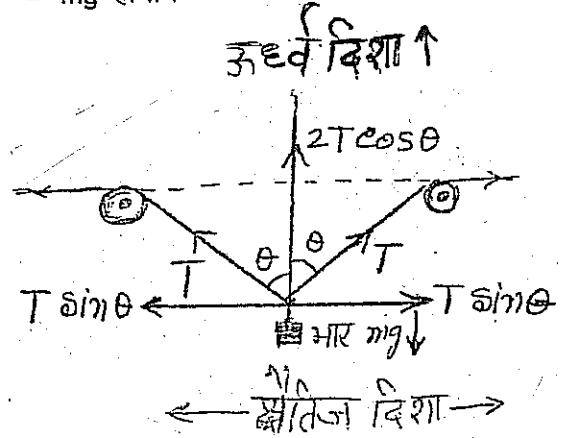 mg
ऊर्ध्व दिशा ↑
2T cosθ
T θ θ T
T sinθ T sinθ
भार mg ↓
← क्षैतिज दिशा →